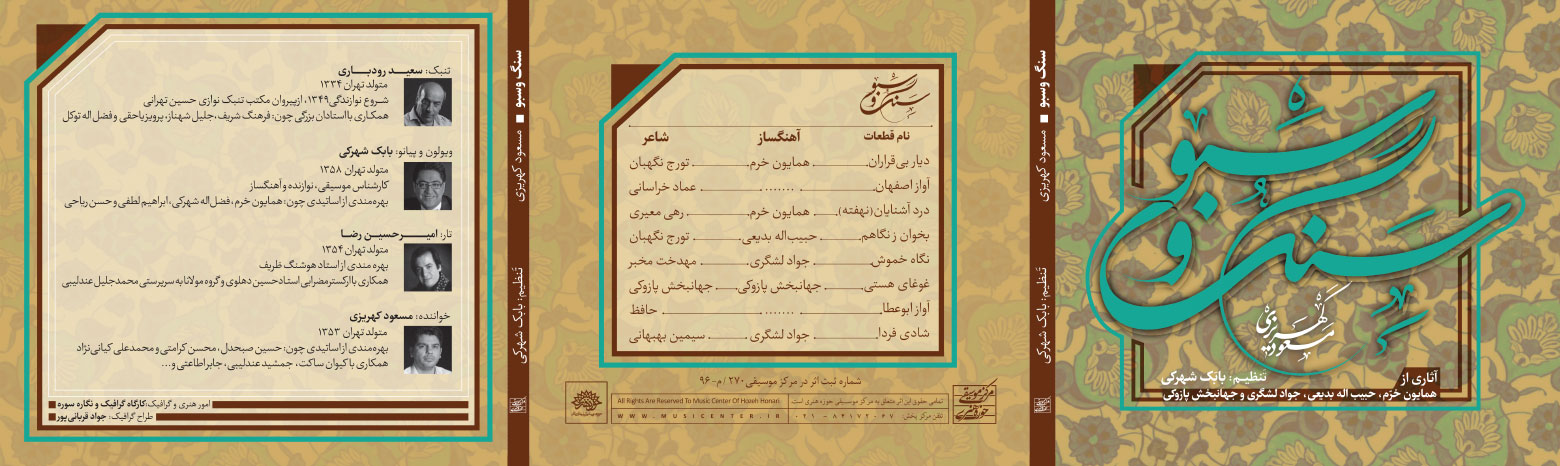 سنگ و سبو
مسعود کهریزی
آثاری از
تنظیم: بابک شهرکی
همایون خرّم، حبیب اله بدیعی، جواد لشگری و جهانبخش پازوکی
سنگ وسبو ■ مسعود کهریزی
تنظیم: بابک شهرکی
سنگ و سبو
نام قطعات آهنگساز شاعر
دیار بی‌قراران همایون خرم تورج نگهبان
آواز اصفهان ........ عماد خراسانی
درد آشنایان(نهفته) همایون خرم رهی معیری
بخوان ز نگاهم حبیب‌اله بدیعی تورج نگهبان
نگاه خموش جواد لشگری مهدخت مخبر
غوغای هستی جهانبخش پازوکی جهانبخش پازوکی
آواز ابوعطا ........ حافظ
شادی فردا جواد لشگری سیمین بهبهانی
شماره ثبت اثر در مرکز موسیقی ۲۷۰ /م-۹۶
مرکز موسیقی حوزه هنری
تمامی حقوق این اثر متعلق به مرکز موسیقی حوزه هنری است.
All Rights Are Reserved To Music Center Of Hozeh Honari
تلفن مرکز پخش: ۰۲۱-۸۴۱۷۲۰۴۷
WWW.MUSICENTER.IR
سنگ وسبو ■ مسعود کهریزی
تنظیم: بابک شهرکی
تنبک: سعیـــد رودبـــاری
متولد تهران ۱۳۳۴
شـروع نوازندگی۱۳۴۹، ازپیروان مکتب تنبک نوازی حسین تهرانی
همکـاری بااستادان بزرگی چون: فرهنگ شریف، جلیل شهناز، پرویزیاحقی و فضل اله توکل
ویولون و پیانو: بابک شهرکی
متولد تهران ۱۳۵۸
کارشناس موسیقی، نوازنده و آهنگساز
بهره‌مندی از اساتیدی چون: همایون خرم، فضل‌اله شهرکی، ابراهیم لطفی و حسن ریاحی
تار: امیـــرحسین رضـا
متولد تهران ۱۳۵۴
بهره مندی از استاد هوشنگ ظریف
همکاری با ارکسترمضرابی استادحسین دهلوی و گروه مولانا به سرپرستی محمدجلیل عندلیبی
خواننده: مسعود کهریزی
متولد تهران ۱۳۵۳
بهره‌مندی از اساتیدی چون: حسین صبحدل، محسن کرامتی و محمدعلی کیانی‌نژاد
همکاری با کیوان ساکت، جمشید عندلیبی، جابراطاعتی و...
امور هنری و گرافیک:کارگاه گرافیک و نگاره سوره
طراح گرافیک: جواد قربانی‌پور